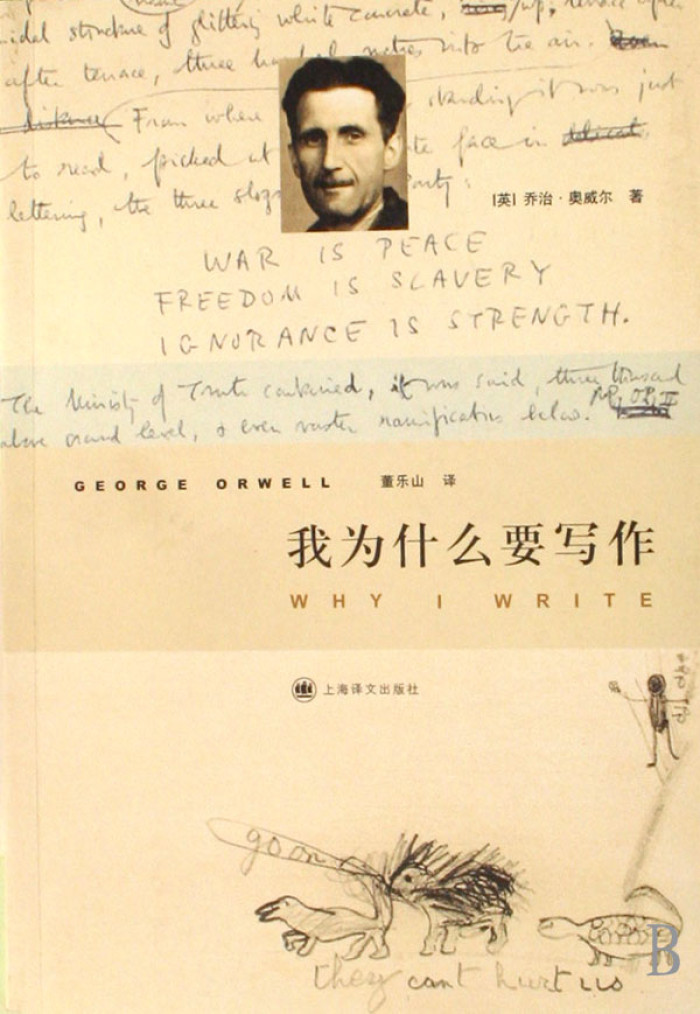 idal structure of glittering white concrete,
after terrace, three hundred metres into the air.
From where standing it was just
to read, picked face in
lettering, the three Party:
[英] 乔治·奥威尔 著
WAR IS PEACE
FREEDOM IS SLAVERY
IGNORANCE IS STRENGTH.
The Ministry of Truth contained, it was said, three thousand
above ground level, & even vaster ramifications below.
GEORGE ORWELL 董乐山 译
我为什么要写作
WHY I WRITE
上海译文出版社
go on
they cant hurt us
B